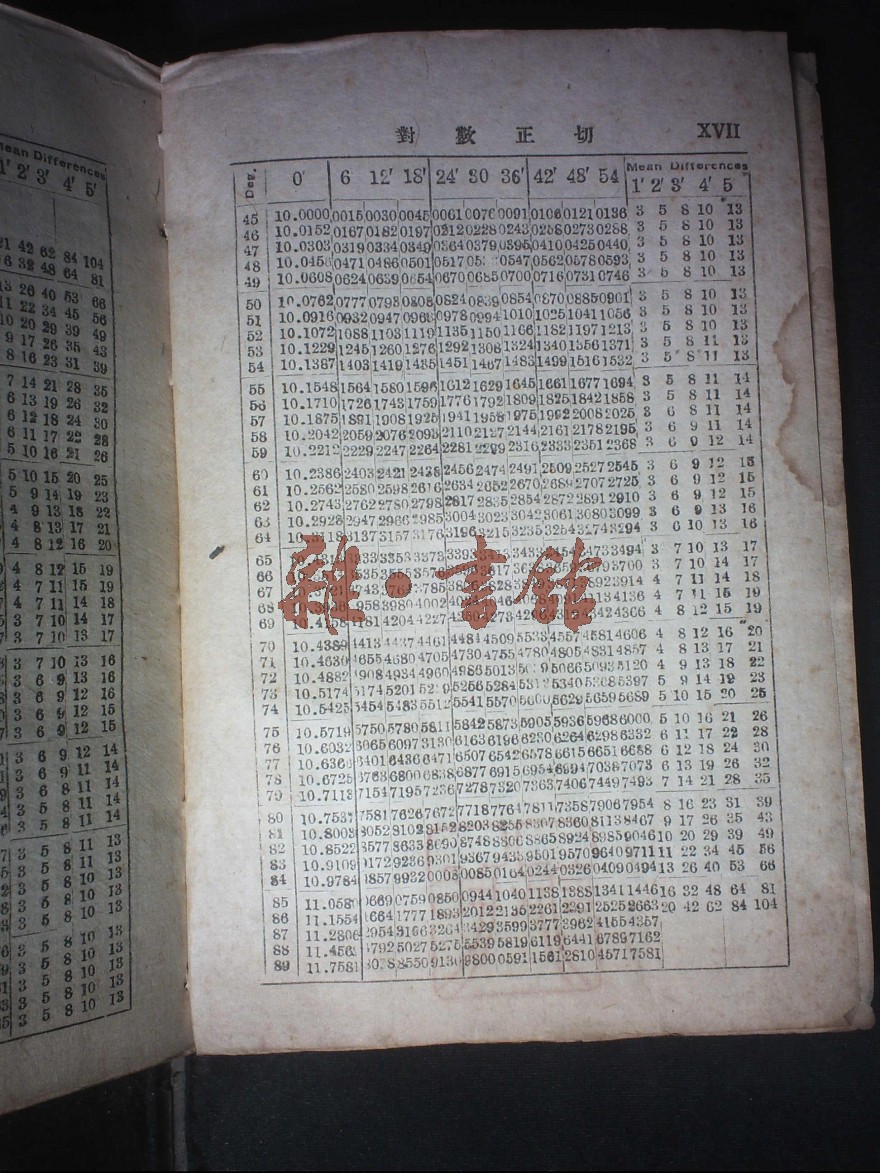 Mean Differences
1' 2' 3' 4' 5'
21 42 62 84 104
16 32 48 64 81
13 26 40 53 66
11 22 34 45 56
10 20 29 39 49
9 17 26 35 43
8 16 23 31 39
7 14 21 28 35
6 13 19 26 32
6 12 18 24 30
6 11 17 22 28
5 10 16 21 26
5 10 15 20 25
5 9 14 19 23
4 9 13 18 22
4 8 13 17 21
4 8 12 16 20
4 8 12 15 19
4 7 11 15 19
4 7 11 14 18
3 7 10 14 17
3 7 10 13 17
3 7 10 13 16
3 6 9 13 16
3 6 9 12 16
3 6 9 12 15
3 6 9 12 15
3 6 9 12 14
3 6 9 11 14
3 6 8 11 14
3 5 8 11 14
3 5 8 11 14
3 5 8 11 13
3 5 8 11 13
3 5 8 10 13
3 5 8 10 13
3 5 8 10 13
3 5 8 10 13
3 5 8 10 13
3 5 8 10 13
3 5 8 10 13
3 5 8 10 13
對 數 正 切 XVII
Deg. 0' 6 12' 18' 24' 30 36' 42' 48' 54 Mean Differences
1' 2' 3' 4' 5
45 10.0000 0015 0030 0045 0061 0076 0091 0106 0121 0136 3 5 8 10 13
46 10.0152 0167 0182 0197 0212 0228 0243 0258 0273 0288 3 5 8 10 13
47 10.0303 0319 0334 0349 0364 0379 0395 0410 0425 0440 3 5 8 10 13
48 10.0456 0471 0486 0501 0517 0547 0562 0578 0593 3 5 8 10 13
49 10.0608 0624 0639 0654 0670 0685 0700 0716 0731 0746 3 5 8 10 13
50 10.0762 0777 0793 0808 0824 0839 0854 0870 0885 0901 3 5 8 10 13
51 10.0916 0932 0947 0963 0978 0994 1010 1025 1041 1056 3 5 8 10 13
52 10.1072 1088 1103 1119 1135 1150 1166 1182 1197 1213 3 5 8 10 13
53 10.1229 1245 1260 1276 1292 1308 1324 1340 1356 1371 3 5 8 11 13
54 10.1387 1403 1419 1435 1451 1467 1483 1499 1516 1532 3 5 8 11 13
55 10.1548 1564 1580 1596 1612 1629 1645 1661 1677 1694 3 5 8 11 14
56 10.1710 1726 1743 1759 1776 1792 1809 1825 1842 1858 3 5 8 11 14
57 10.1875 1891 1908 1925 1941 1958 1975 1992 2008 2025 3 6 8 11 14
58 10.2042 2059 2076 2093 2110 2127 2144 2161 2178 2195 3 6 9 11 14
59 10.2212 2229 2247 2264 2281 2299 2316 2333 2351 2368 3 6 9 12 14
60 10.2386 2403 2421 2438 2456 2474 2491 2509 2527 2545 3 6 9 12 15
61 10.2562 2580 2598 2616 2634 2652 2670 2689 2707 2725 3 6 9 12 15
62 10.2743 2762 2780 2798 2817 2835 2854 2872 2891 2910 3 6 9 12 15
63 10.2928 2947 2966 2985 3004 3023 3042 3061 3080 3099 3 6 9 13 16
64 3137 3157 3176 3196 3215 3235 3254 3274 3294 3 6 10 13 16
65 3494 3 7 10 13 17
66 3700 3 7 10 14 17
67 3914 4 7 11 14 18
68 3958 3980 4002 4136 4 7 11 15 19
69 4181 4204 4227 4366 4 8 12 15 19
70 10.4389 4413 4437 4461 4484 4509 4533 4557 4581 4606 4 8 12 16 20
71 10.4630 4655 4680 4705 4730 4755 4780 4805 4831 4857 4 8 13 17 21
72 10.4882 4908 4934 4960 4986 5013 5039 5066 5093 5120 4 9 13 18 22
73 10.5174 5174 5201 5229 5256 5284 5312 5340 5368 5397 5 9 14 19 23
74 10.5425 5454 5483 5512 5541 5570 5600 5629 5659 5689 5 10 15 20 25
75 10.5719 5750 5780 5811 5842 5873 5905 5936 5968 6000 5 10 16 21 26
76 10.6032 6065 6097 3130 6163 6196 6230 6264 6298 6332 6 11 17 22 28
77 10.6366 6401 6436 6471 6507 6542 6578 6615 6651 6688 6 12 18 24 30
78 10.6725 6763 6800 6838 6877 6915 6954 6994 7033 7073 6 13 19 26 32
79 10.7113 7154 7195 7236 7278 7320 7363 7406 7449 7493 7 14 21 28 35
80 10.7537 7581 7626 7672 7718 7764 7811 7858 7906 7954 8 16 23 31 39
81 10.8003 8052 8102 8152 8203 8255 8307 8360 8113 8467 9 17 26 35 43
82 10.8522 8577 8633 8690 8748 8806 8865 8924 8985 9046 10 20 29 39 49
83 10.9109 9172 9236 9301 9367 9433 9501 9570 9640 9711 11 22 34 45 56
84 10.9784 9857 9932 0008 0085 0164 0244 0326 0409 0494 13 26 40 53 66
85 11.0580 0669 0759 0850 0944 1040 1138 1138 1341 1446 16 32 48 64 81
86 11.1554 1664 1777 1893 2012 2135 2261 2391 2525 2663 20 42 62 84 104
87 11.2806 2954 3106 3264 3429 3599 3777 3962 4155 4357
88 11.4561 4792 5027 5275 5539 5819 6119 6441 6789 7162
89 11.7581 8038 8550 9130 9800 0591 1561 2810 4571 7581
雜·書館